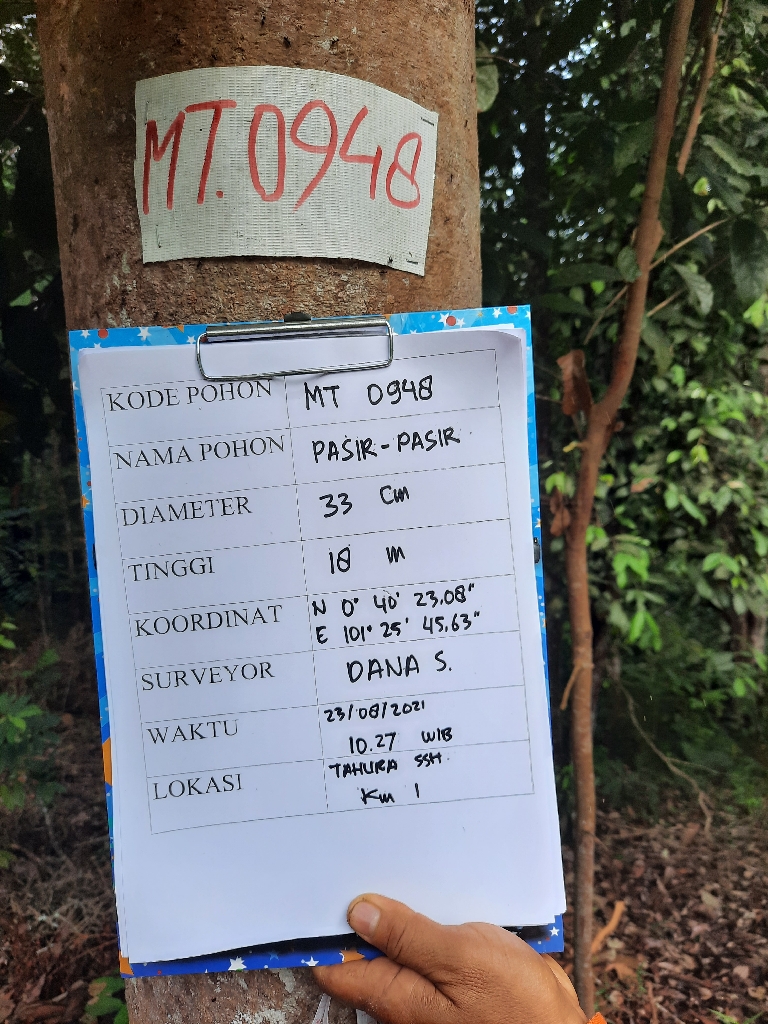 MT.0948
KODE POHON MT 0948
NAMA POHON PASIR-PASIR
DIAMETER 33 Cm
TINGGI 18 m
KOORDINAT N 0° 40' 23.08"
E 101° 25' 45.63"
SURVEYOR DANA S.
WAKTU 23/08/2021
10.27 WIB
LOKASI TAHURA SSH.
Km 1